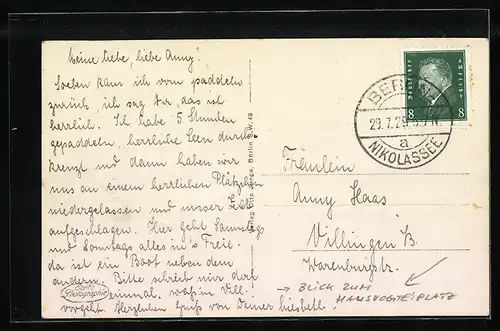 Meine liebe, liebe Anny!
Soeben kam ich vom paddeln
zurück, ich sag Dir, das ist
herrlich. Ich habe 5 Stunden
gepaddelt, herrliche Seen durch
kreuzt und dann haben wir
uns an einem herrlichen Plätzchen
niedergelassen und unser Zelt
aufgeschlagen. Hier geht Samstags
und Sonntags alles in's Freie.
da ist ein Boot neben dem
andern. Bitte schreib mir doch
einmal, was in Vill.
vorgeht. Herzlichen Gruß von Deiner
Echte Photographie
Verlag Otto Berlin S.W. 48
Deutsches Reich
8 8
BERLIN
29.7.29. 5-7 N.
a
NIKOLASSEE
Fräulein
Anny Haas
Villingen B.
Warenburgstr.
→ BLICK ZUM
HAUSVOGTEIPLATZ